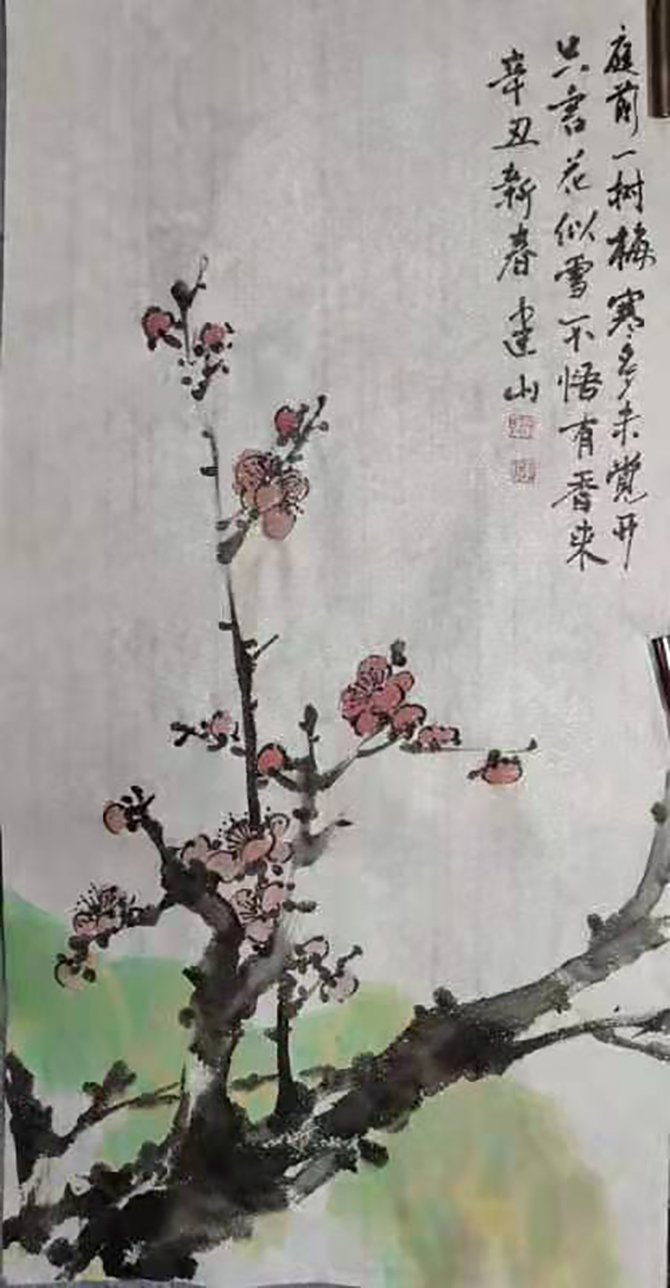 庭前一树梅寒多未觉开
只言花似雪不悟有香来
辛丑新春建山